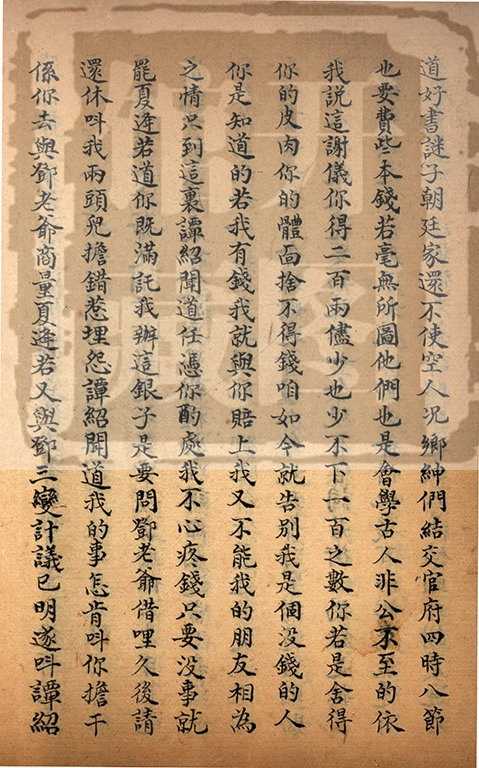 道好書謎子朝廷家還不使空人况鄉紳們結交官府四時八節
也要費些本錢若毫無所圖他們也是會學古人非公不至的依
我說這謝儀你得二百兩儘少也少不下一百之數你若是舍得
你的皮肉你的體面捨不得錢咱如今就告别我是個没錢的人
你是知道的若我有錢我就與你賠上我又不能我的朋友相為
之情只到這裏譚紹聞道任憑你酌處我不心疼錢只要没事就
罷夏逄若道你既滿託我辦這銀子是要問鄧老爺借哩久後請
還休呌我兩頭兒擔錯惹埋怨譚紹聞道我的事怎肯呌你擔干
係你去與鄧老爺商量夏逄若又與鄧三變計議已明遂呌譚紹